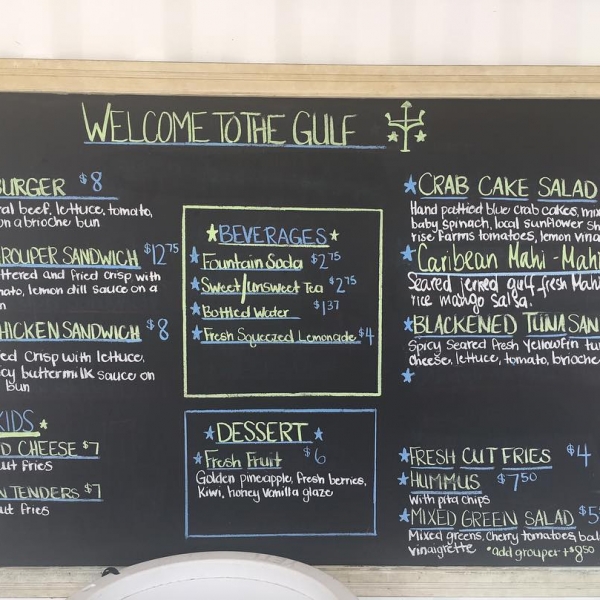 WELCOME TO THE GULF
BURGER $8
beef, lettuce, tomato,
on a brioche bun
GROUPER SANDWICH $12.75
and fried crisp with
lemon dill sauce on a
CHICKEN SANDWICH $8
crisp with lettuce,
buttermilk sauce on
bun
KIDS
CHEESE $7
fries
TENDERS $7
fries
BEVERAGES
Fountain Soda $2.75
Sweet/unsweet Tea $2.75
Bottled Water $1.37
Fresh Squeezed Lemonade $4
DESSERT
Fresh Fruit $6
Golden pineapple, fresh berries,
Kiwi, honey vanilla glaze
CRAB CAKE SALAD
Hand pattied blue crab cakes,
baby spinach, local sunflower
rise Farms tomatoes, lemon
Caribean Mahi-Mahi
Seared jerked gulf fresh
rice mango salsa.
BLACKENED TUNA
Spicy seared fresh Yellowfin
cheese, lettuce, tomato, brioche
FRESH CUT FRIES $4
HUMMUS $7.50
With pita chips
MIXED GREEN SALAD
Mixed greens, cherry tomatoes,
vinaigrette *add grouper +$8.50